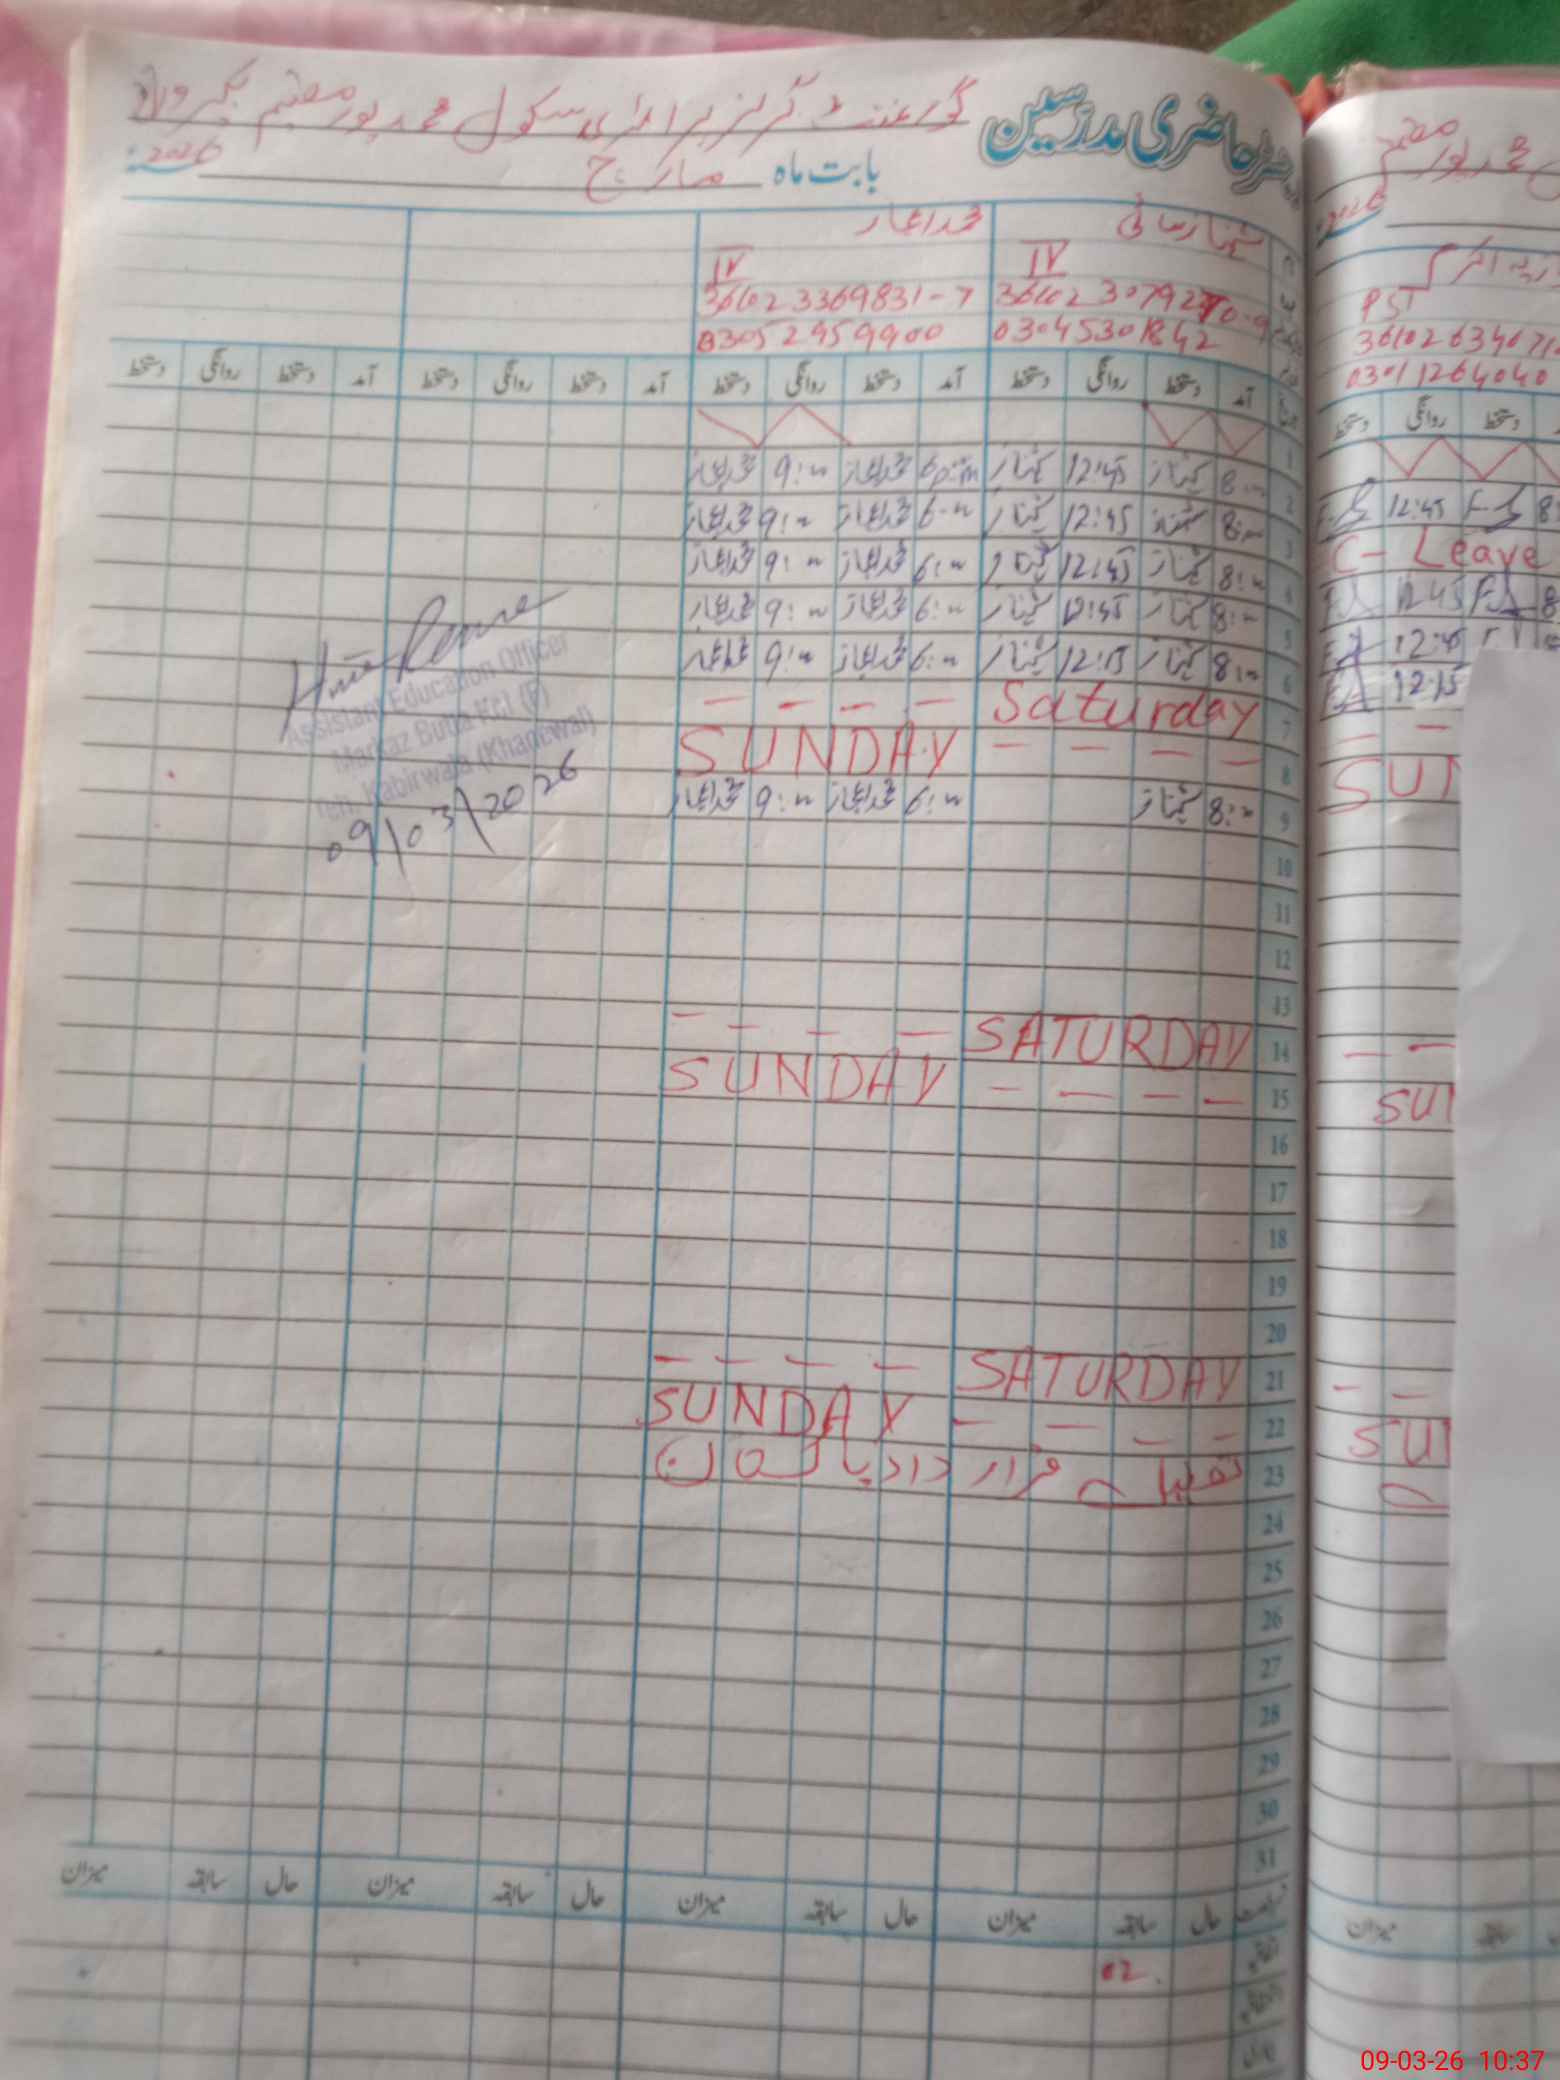 رجسٹر حاضری مدرسین گورنمنٹ گرلز پرائمری سکول محمد پور
بابت ماہ مارچ 2026
محمد اعجاز
IV IV
36102 3369831-7
03052959900 03045301842
آمد دستخط روانگی دستخط آمد دستخط روانگی دستخط آمد دستخط روانگی دستخط آمد دستخط روانگی دستخط
1
2 8:00 شہناز 12:45 شہناز 6 p:m محمد اعجاز 9:00 محمد اعجاز
3 8:00 شہناز 12:45 شہناز 6:00 محمد اعجاز 9:00 محمد اعجاز
4 8:00 شہناز 12:45 شہناز 6:00 محمد اعجاز 9:00 محمد اعجاز
5 8:00 شہناز 12:45 شہناز 6:00 محمد اعجاز 9:00 محمد اعجاز
6 8:00 شہناز 12:15 شہناز 6:00 محمد اعجاز 9:00 محمد اعجاز
7 Saturday - - - -
8 SUNDAY - - - -
9 8:00 شہناز 6:00 محمد اعجاز 9:00 محمد اعجاز
10
11
12
13
14 SATURDAY - - - -
15 SUNDAY - - - -
16
17
18
19
20
21 SATURDAY - - - -
22 SUNDAY - - - -
23 تعطیل قرارداد پاکستان
24
25
26
27
28
29
30
31
حال سابقہ میزان حال سابقہ میزان حال سابقہ میزان حال سابقہ میزان
اتفاقی 02
Assistant Education Officer
Markaz
Teh. Kabirwala (Khanewal)
09/03/2026
PST
03011264040
دستخط روانگی دستخط
12:45 8:
C- Leave
12:45 8:
12:45
12:15
SUN
SUN
SUN
میزان سابقہ
09-03-26 10:37